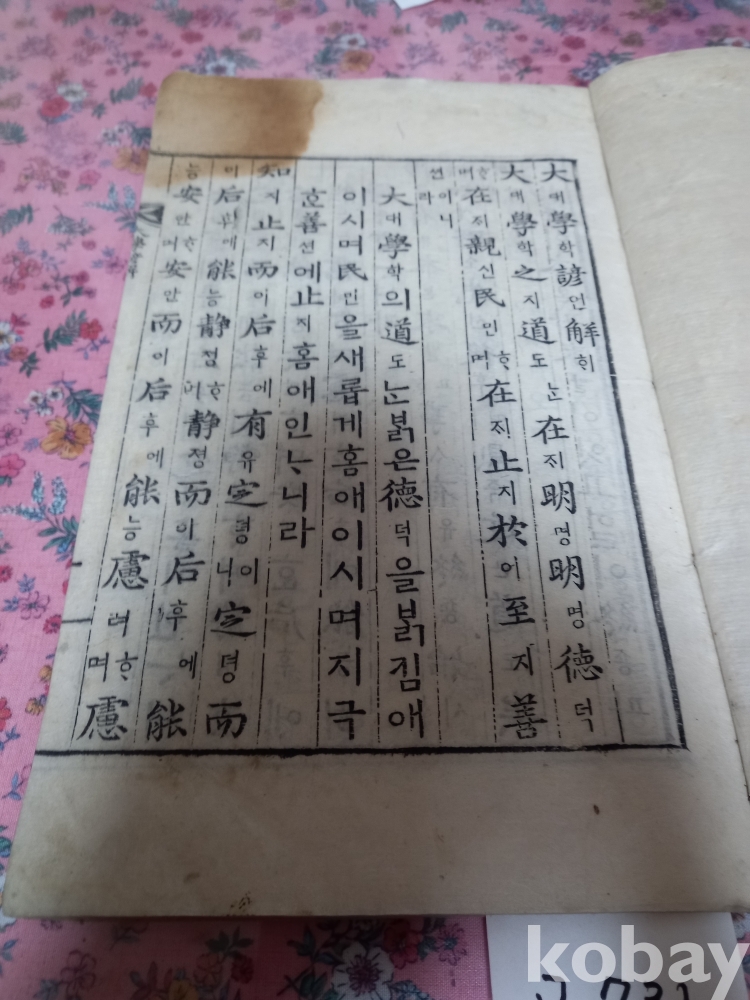 大대學학諺언解ᄒᆡ
大대學학之지道도ᄂᆞᆫ在ᄌᆡ明명明명德덕
ᄒᆞ며在ᄌᆡ親신民민ᄒᆞ며在ᄌᆡ止지於어至지善
션이니라
大대學학의道도ᄂᆞᆫᄇᆞᆰ은德덕을ᄇᆞᆰ킴애
이시며民민을새롭게홈애이시며지극
ᄒᆞᆫ善션에止지홈애인ᄂᆞ니라
知지止지而이后후에有유定뎡이니定뎡而
이后후에能능静졍ᄒᆞ며静졍而이后후에能
능安안ᄒᆞ며安안而이后후에能능慮려ᄒᆞ며慮
kobay